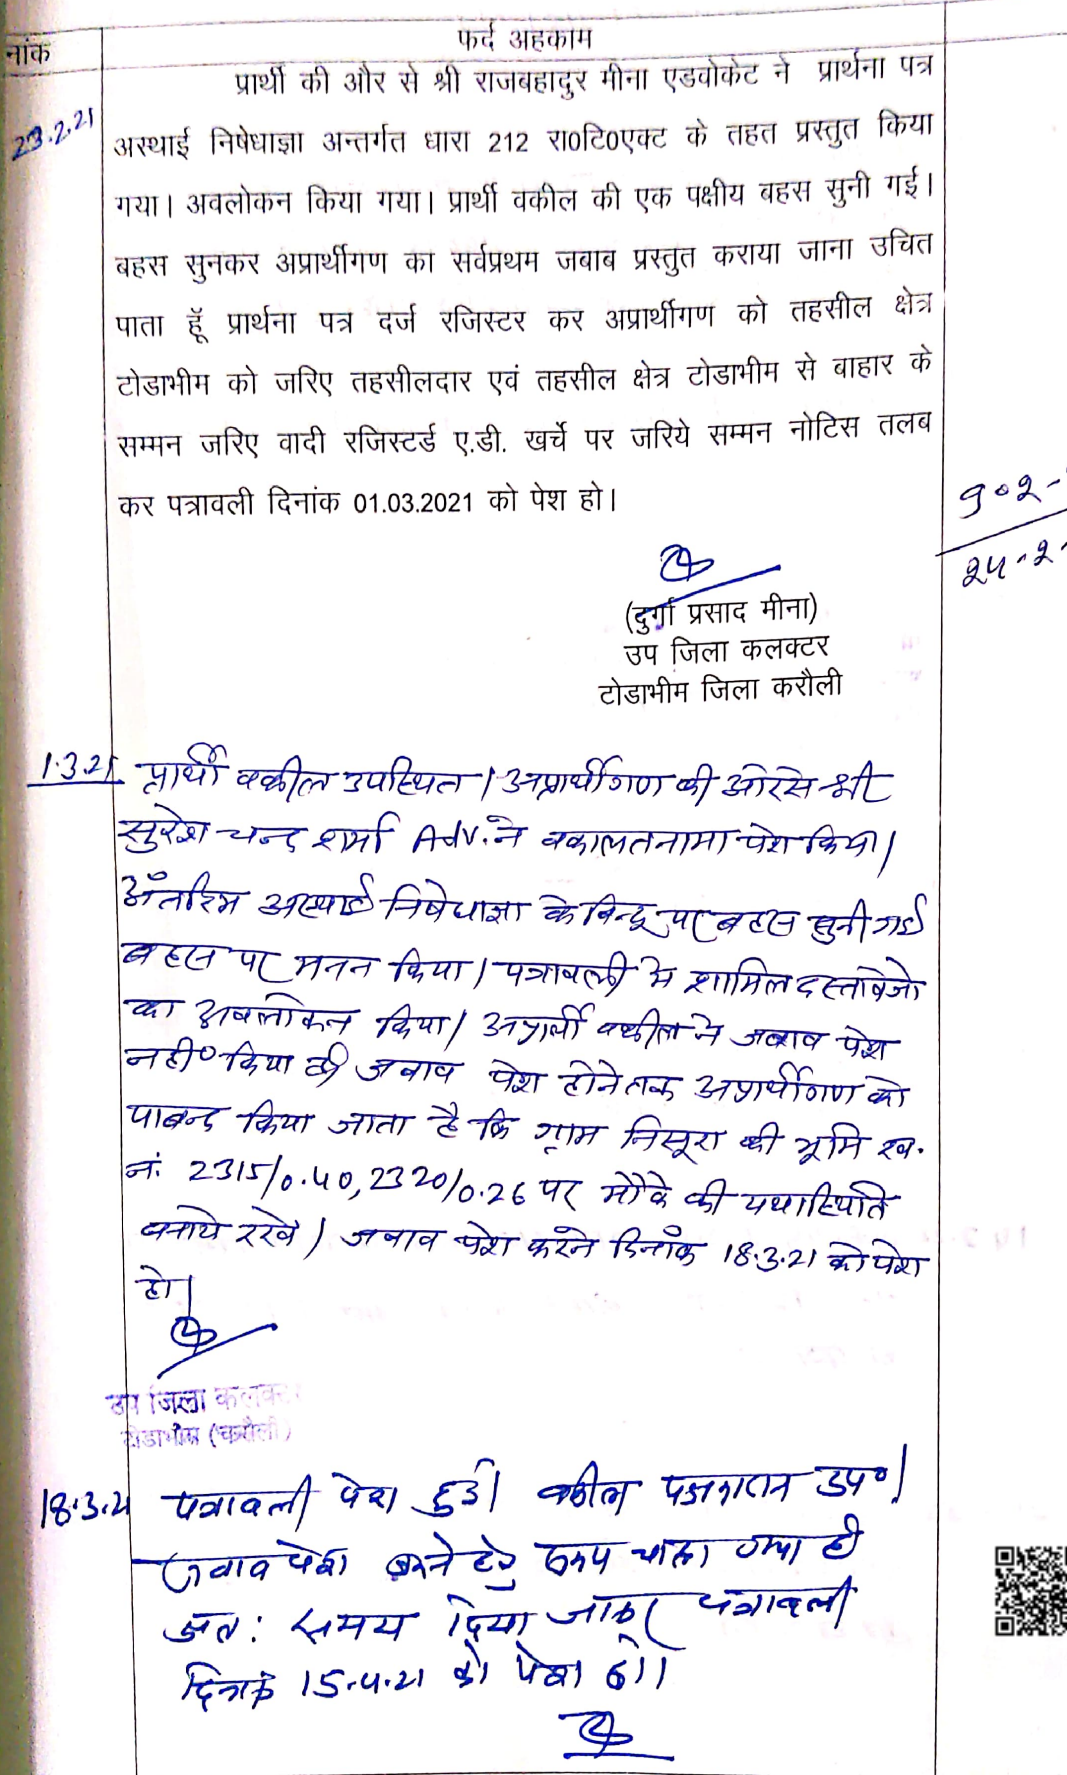 नांक
फर्द अहकाम
23.2.21
प्रार्थी की और से श्री राजबहादुर मीना एडवोकेट ने प्रार्थना पत्र
अस्थाई निषेधाज्ञा अन्तर्गत धारा 212 रा0टि0एक्ट के तहत प्रस्तुत किया
गया। अवलोकन किया गया। प्रार्थी वकील की एक पक्षीय बहस सुनी गई।
बहस सुनकर अप्रार्थीगण का सर्वप्रथम जबाब प्रस्तुत कराया जाना उचित
पाता हूॅ प्रार्थना पत्र दर्ज रजिस्टर कर अप्रार्थीगण को तहसील क्षेत्र
टोडाभीम को जरिए तहसीलदार एवं तहसील क्षेत्र टोडाभीम से बाहार के
सम्मन जरिए वादी रजिस्टर्ड ए.डी. खर्चे पर जरिये सम्मन नोटिस तलब
कर पत्रावली दिनांक 01.03.2021 को पेश हो।
९०२-
२५-२-
(दुर्गा प्रसाद मीना)
उप जिला कलक्टर
टोडाभीम जिला करौली
1.3.21 प्रार्थी वकील उपस्थित। अप्रार्थीगण की ओर से श्री
सुरेश चन्द शर्मा Adv. ने वकालतनामा पेश किया।
अँतरिम अस्थाई निषेधाज्ञा के बिन्दू पर बहस सुनी गई
बहस पर मनन किया। पत्रावली मे शामिल दस्तावेजो
का अवलोकन किया। अप्रार्थी वकील ने जबाव पेश
नही किया है। जवाव पेश होने तक अप्रार्थीगण को
पाबन्द किया जाता है कि ग्राम निसूरा की भूमि ख.
नं. 2315/0.40, 2320/0.26 पर मौके की यथास्थिति
बनाये रखे। जवाव पेश करने दिनाँक 18.3.21 को पेश
हो।
उप जिला कलक्टर
टोडाभीम (करौली)
18.3.21 पत्रावली पेश हुई। वकील पक्षकारान उप०।
जवाव पेश करने हेतु समय चाहा गया है।
अत: समय दिया जाकर पत्रावली
दिनांक 15.4.21 को पेश हो।